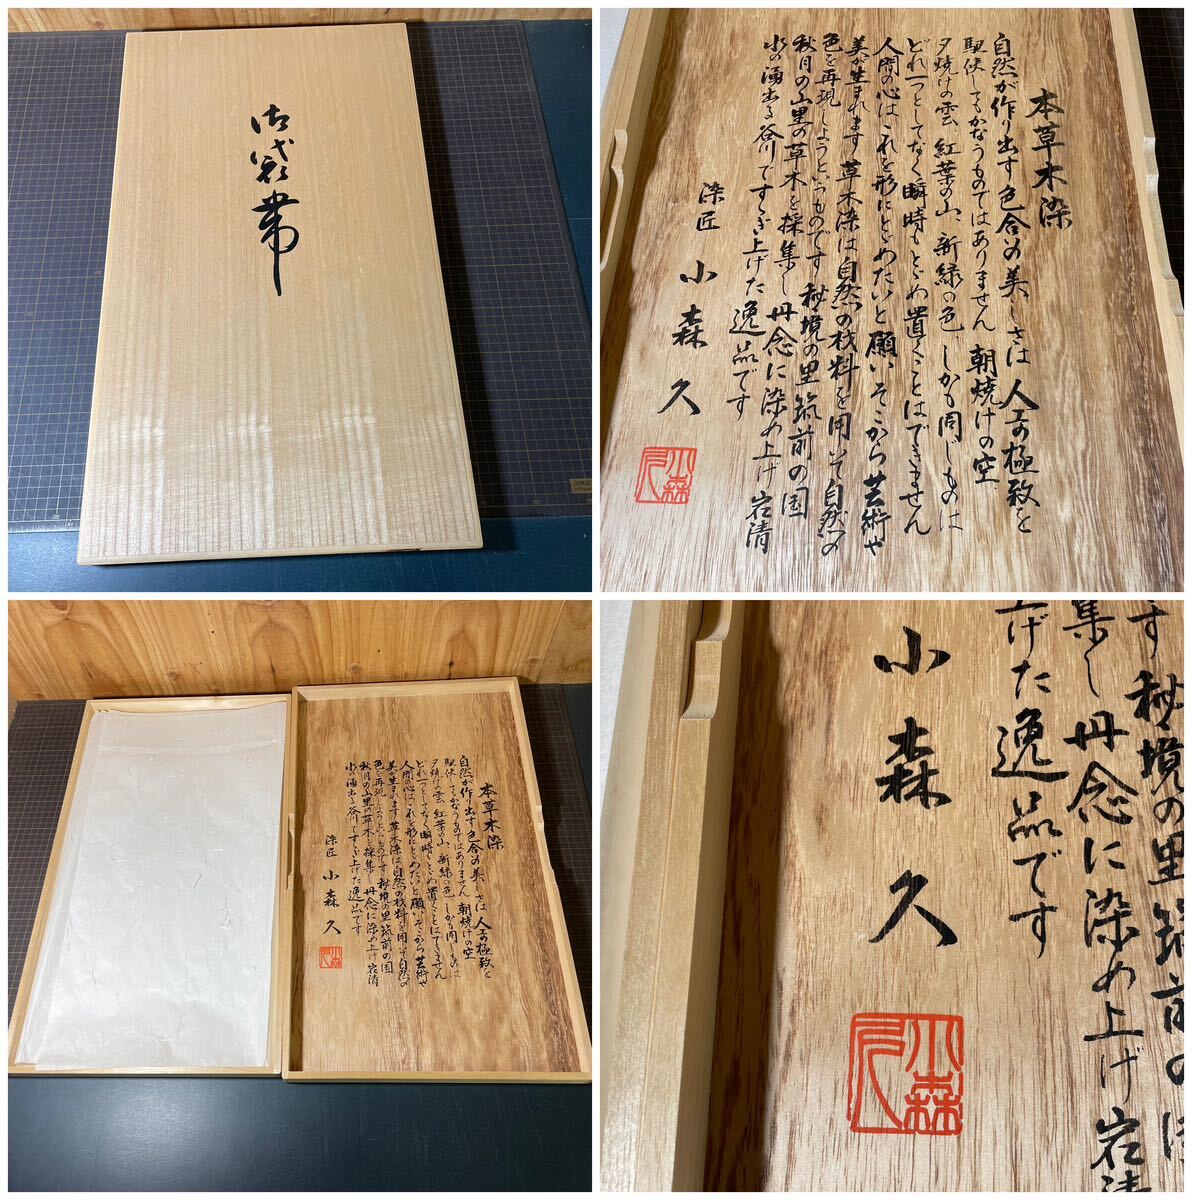 御袋帯
本草木染
自然が作り出す色合の美しさは人工の極致を
駆使してもかなうものではありません 朝焼けの空
夕焼けの雲、紅葉の山、新緑の色、しかも同じものは
どれ一つとしてなく瞬時もとどめ置くことはできません
人間の心はこれを形にとどめたいと願いそこから芸術や
美が生まれます 草木染は自然の材料を用いて自然の
色を再現しようというものです 秘境の里筑前の国
秋月の山里の草木を採集し丹念に染め上げ岩清
水の湧出る谷川ですすぎ上げた逸品です
染匠 小森久
小森久
本草木染
自然が作り出す色合の美しさは人工の極致を
駆使してもかなうものではありません 朝焼けの空
夕焼けの雲、紅葉の山、新緑の色、しかも同じものは
どれ一つとしてなく瞬時もとどめ置くことはできません
人間の心はこれを形にとどめたいと願いそこから芸術や
美が生まれます 草木染は自然の材料を用いて自然の
色を再現しようというものです 秘境の里筑前の国
秋月の山里の草木を採集し丹念に染め上げ岩清
水の湧出る谷川ですすぎ上げた逸品です
染匠 小森久
小森久
す 秘境の里筑前の
集し丹念に染め上げ岩清
上げた逸品です
小森久
小森久